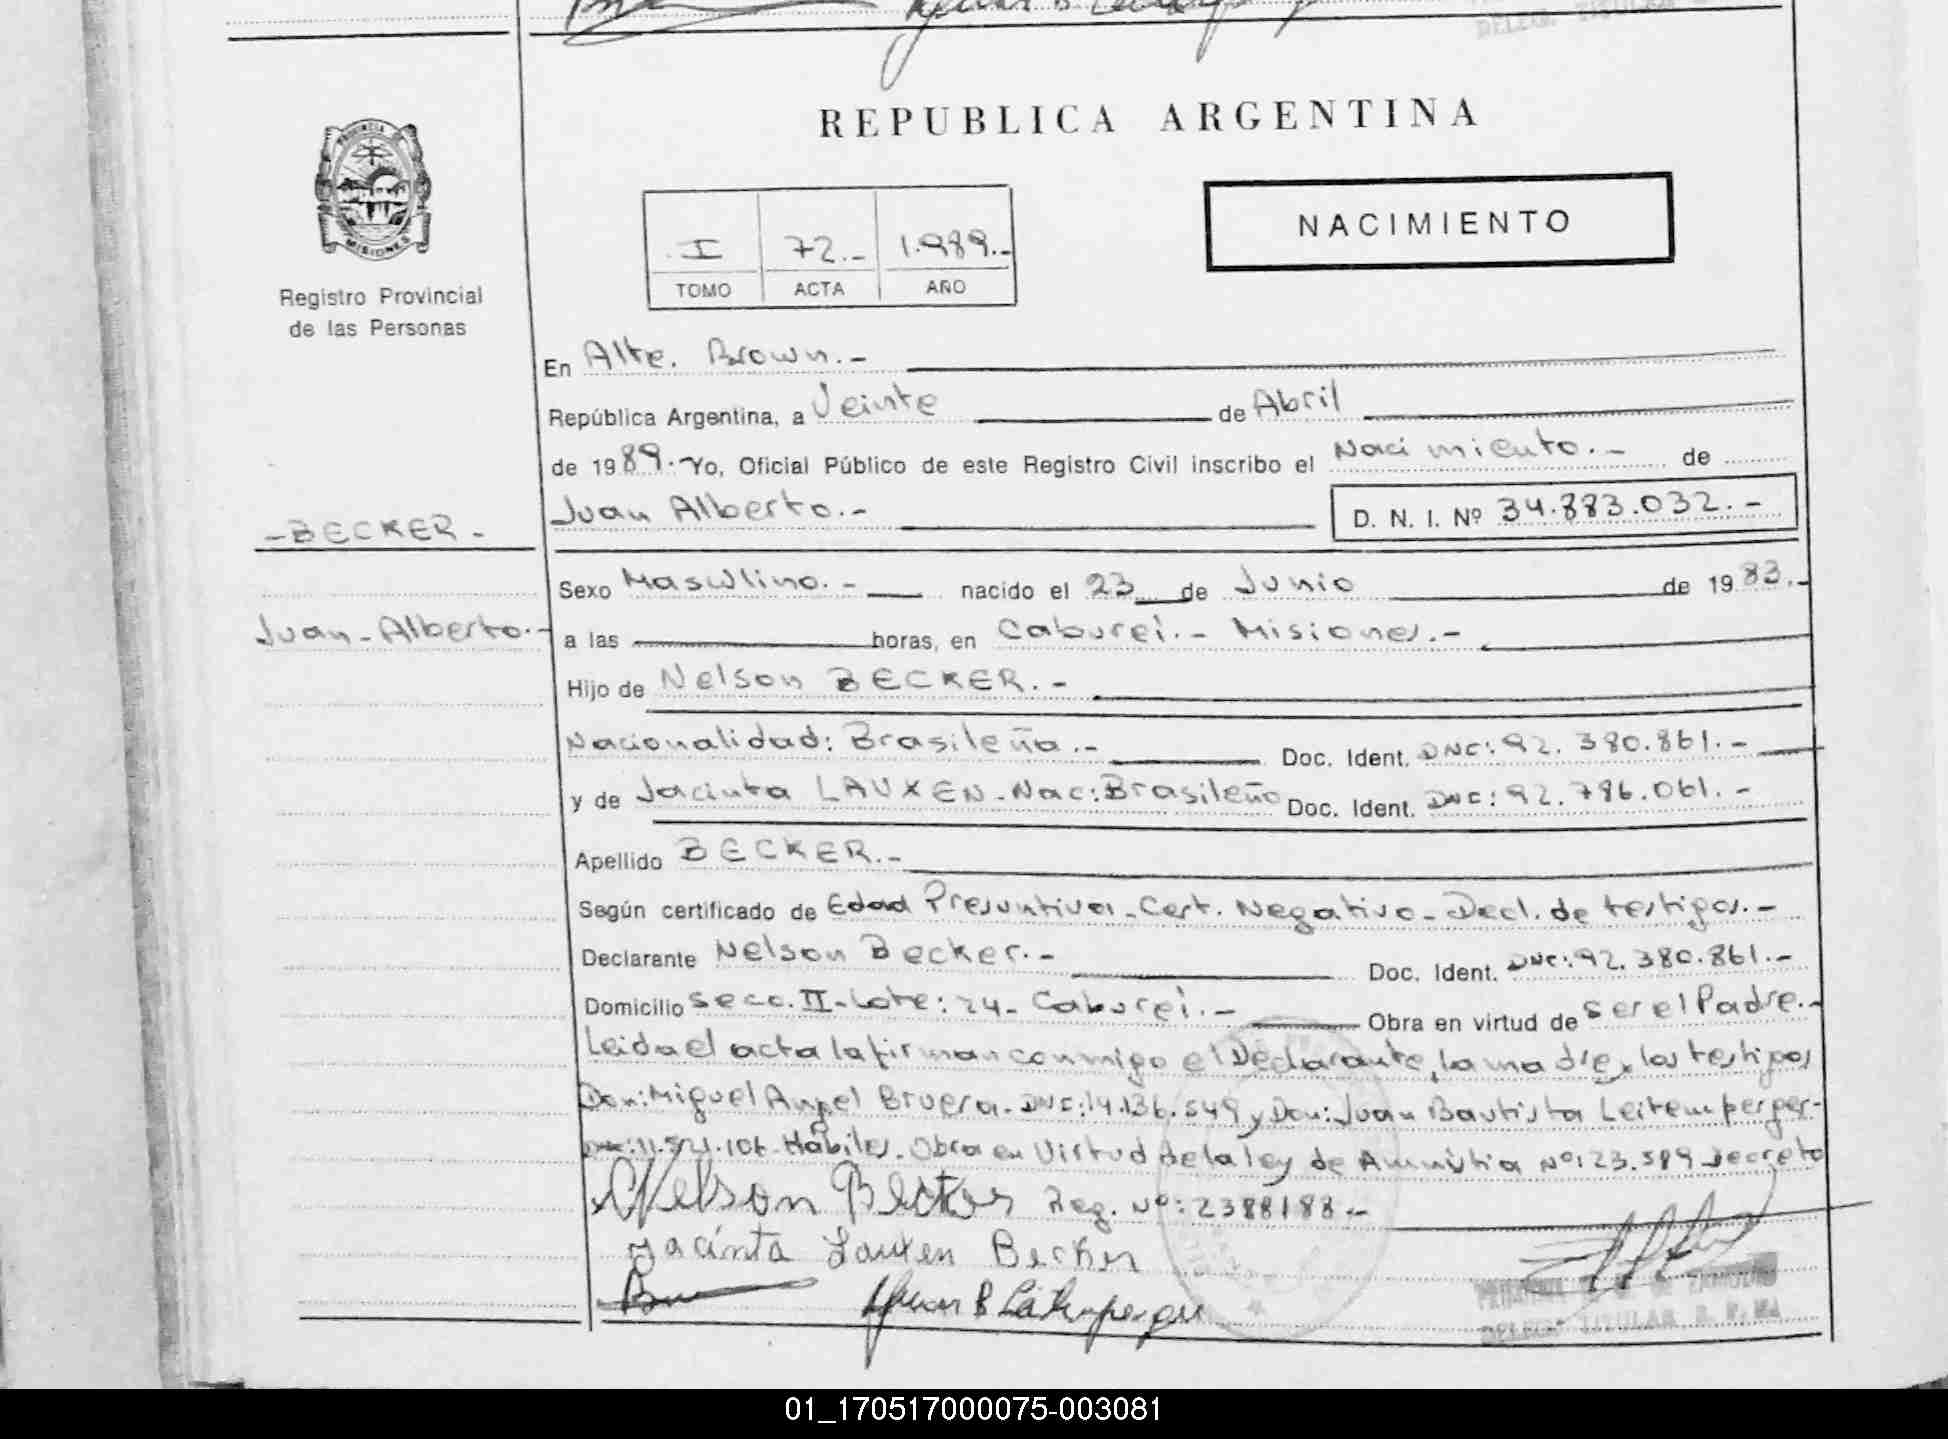 REPUBLICA ARGENTINA
PROVINCIA
MISIONES
Registro Provincial
de las Personas
I 72.- 1.989.-
TOMO ACTA AÑO
NACIMIENTO
En Alte. Brown.-
República Argentina, a Veinte de Abril
de 1989.- Yo, Oficial Público de este Registro Civil inscribo el Nacimiento.- de
Juan Alberto.- D. N. I. Nº 34.883.032.-
-BECKER-
Juan-Alberto.-
Sexo Masculino.- nacido el 23 de Junio de 1983.-
a las horas, en Caburei.- Misiones.-
Hijo de Nelson BECKER.-
Nacionalidad: Brasileña.- Doc. Ident. DNC: 92.380.861.-
y de Jacinta LAUXEN-Nac: Brasileña Doc. Ident. DNC: 92.786.061.-
Apellido BECKER.-
Según certificado de Edad Presuntiva-Cert. Negativo-Decl. de testigos.-
Declarante Nelson Becker.- Doc. Ident. DNC: 92.380.861.-
Domicilio Secc. II-Lote: 24- Caburei.- Obra en virtud de ser el Padre.-
Leida el acta la firman conmigo el Declarante, la madre, los testigos
Don: Miguel Angel Bruera-DNI: 14.136.549 y Don: Juan Bautista Leitemperger-
11.521.106-Hábiles-Obra en Virtud de la ley de Amnistia Nº: 23.519 Decreto
Nelson Becker Reg. Nº: 2388188.-
Jacinta Lauxen Becker
Juan B Leitemperger
DELEG. TITULAR
01_170517000075-003081